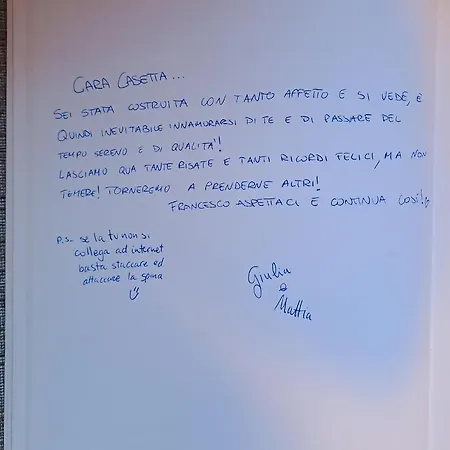 CARA CASETTA...
SEI STATA COSTRUITA CON TANTO AFFETTO E SI VEDE, È
QUINDI INEVITABILE INNAMORARSI DI TE E DI PASSARE DEL
TEMPO SERENO E DI QUALITÀ!
LASCIAMO QUA TANTE RISATE E TANTI RICORDI FELICI, MA NON
TEMERE! TORNEREMO A PRENDERNE ALTRI!
FRANCESCO ASPETTACI E CONTINUA COSÌ!
P.S. se la tv non si
collega ad internet
basta staccare ed
attaccare la spina
Giulia
e
Mattia